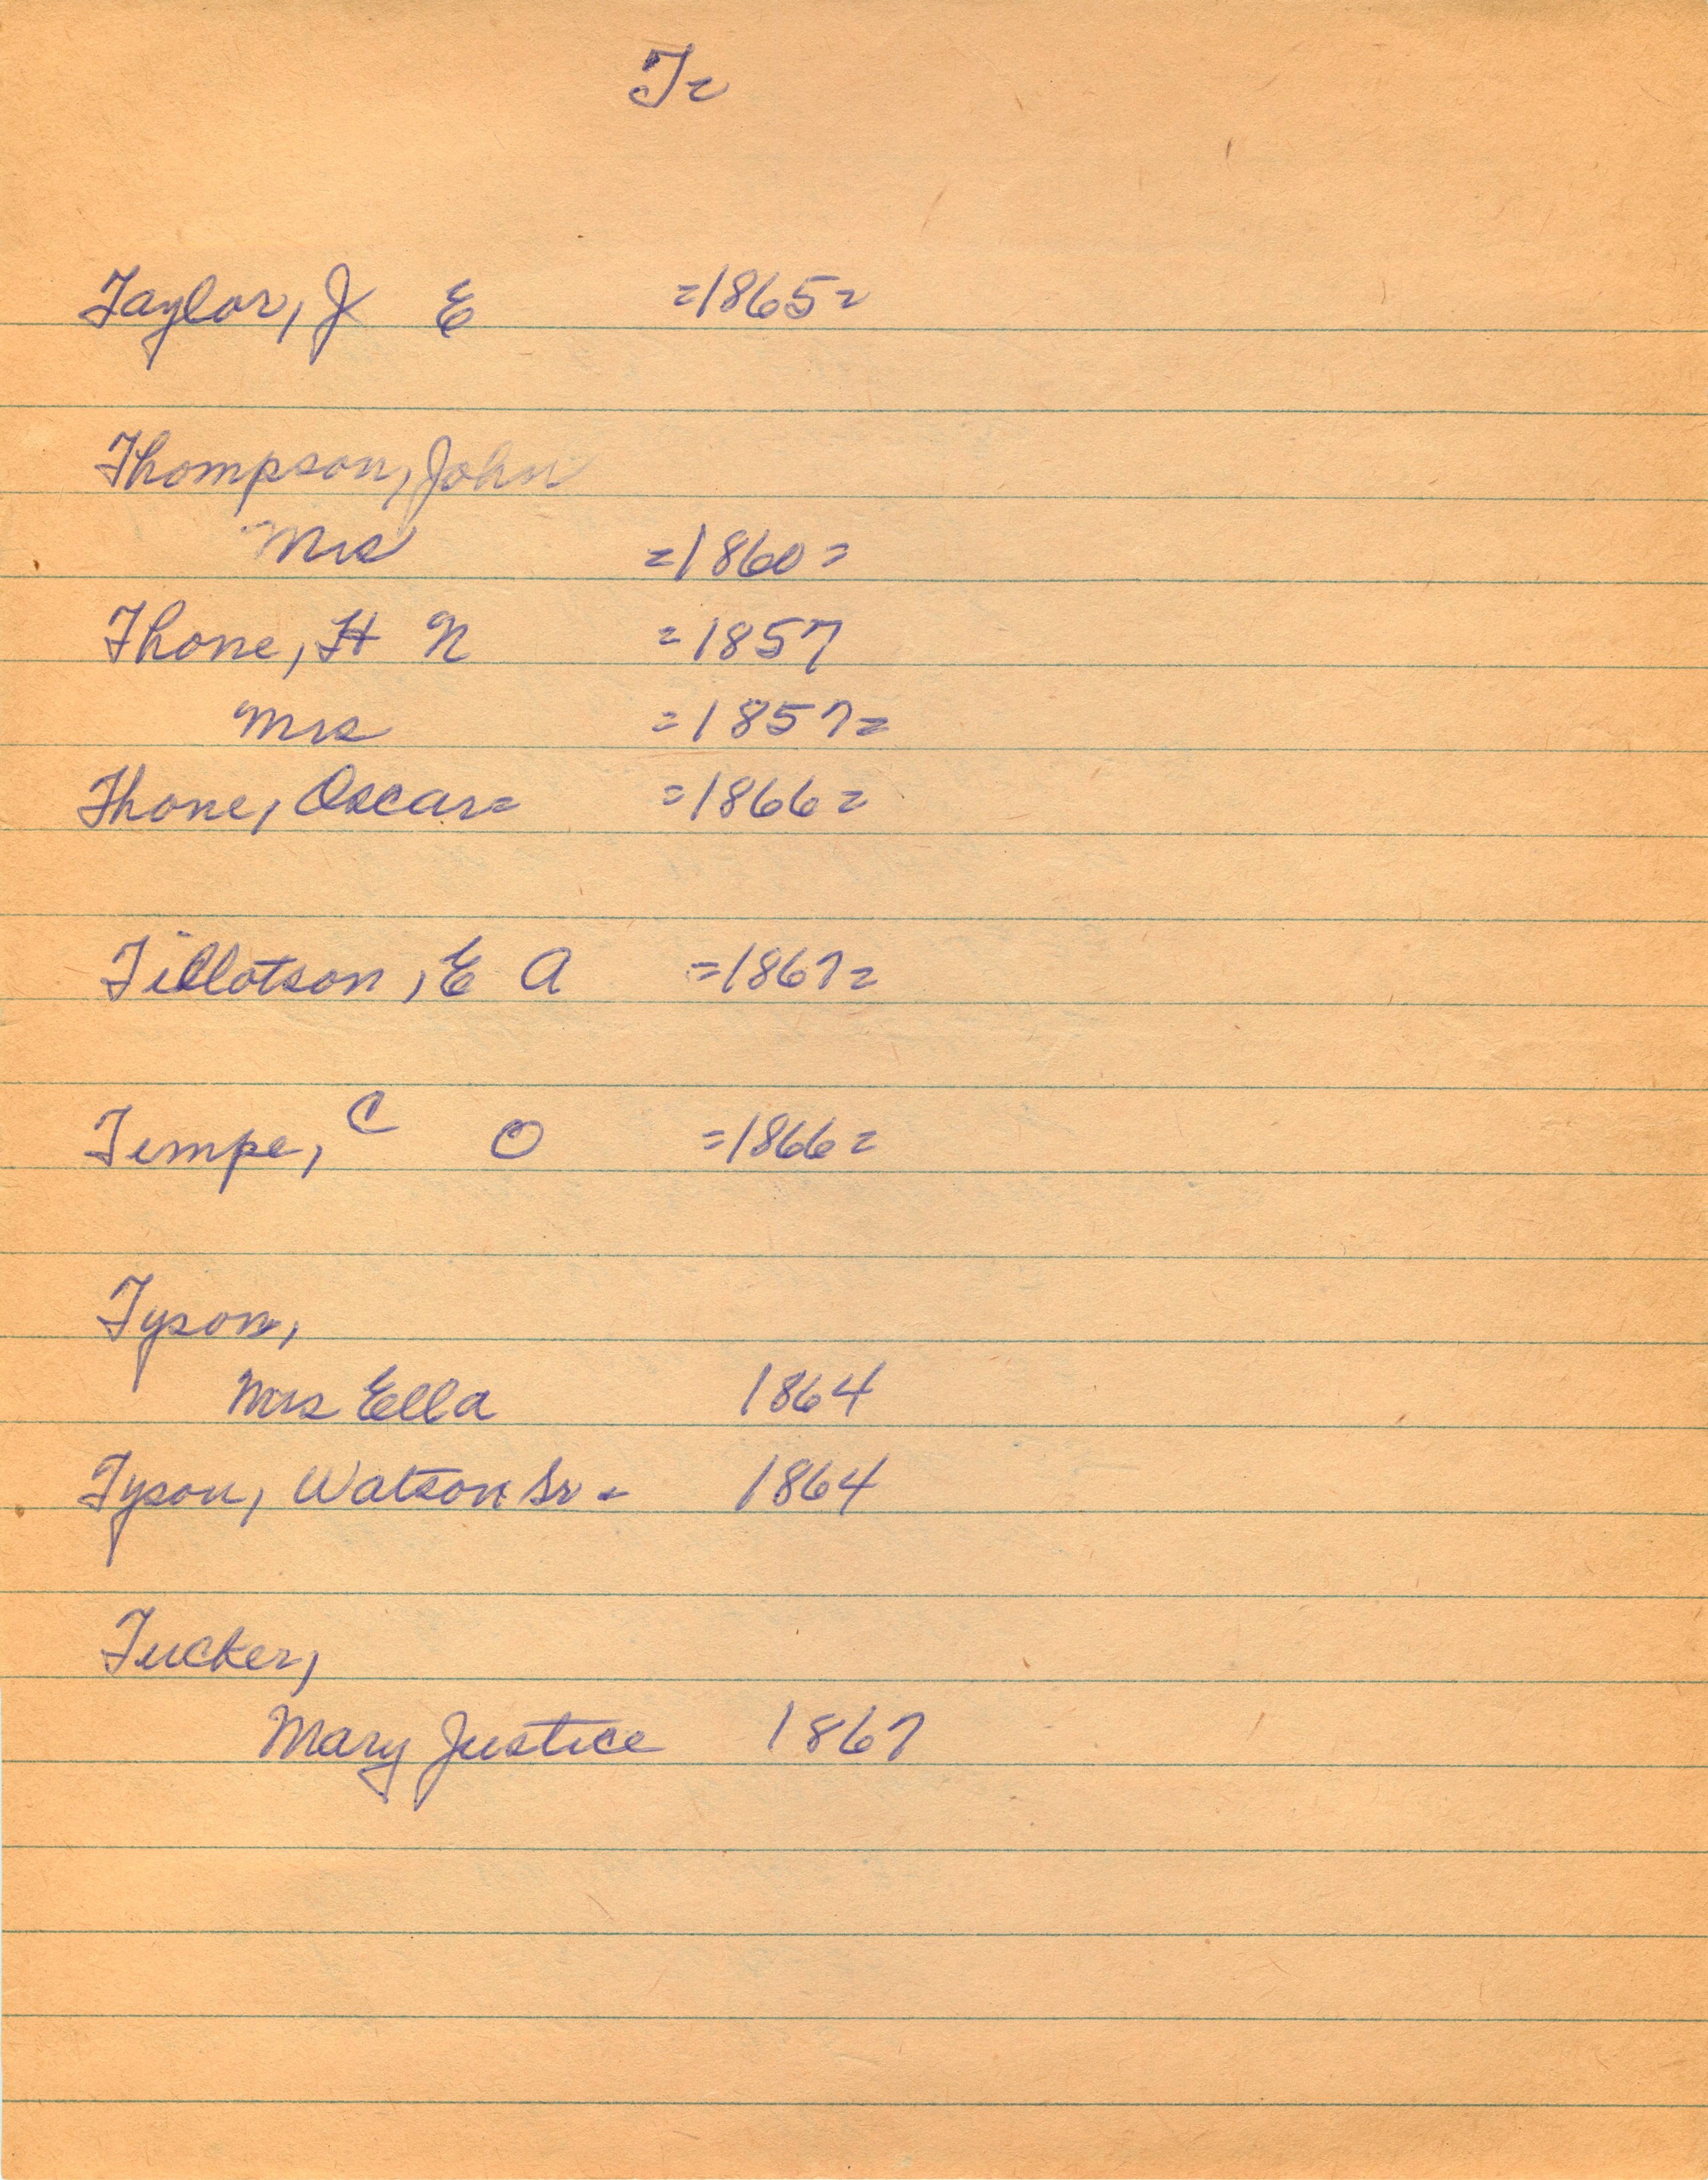 T=
Taylor, J E =1865=
Thompson, John
Mrs =1860=
Thone, H N =1857
Mrs =1857=
Thone, Oscar= =1866=
Tillotson, E A =1867=
Tempe, C O =1866=
Tyson,
Mrs Ella 1864
Tyson, Watson Sr - 1864
Tucker,
Mary Justice 1867